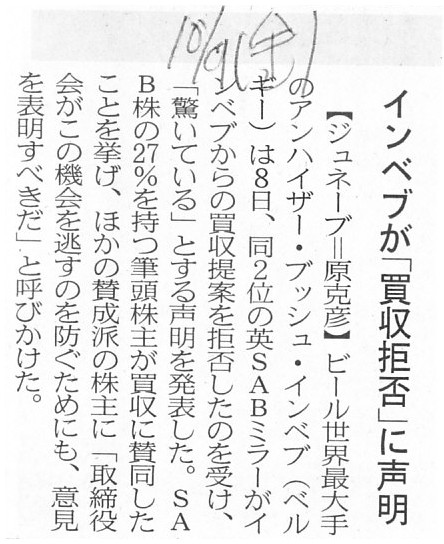 10/9(金)
インベブが「買収拒否」に声明
【ジュネーブ=原克彦】ビール世界最大手
のアンハイザー・ブッシュ・インベブ(ベル
ギー)は8日、同2位の英SABミラーがイ
ンベブからの買収提案を拒否したのを受け、
「驚いている」とする声明を発表した。SA
B株の27%を持つ筆頭株主が買収に賛同した
ことを挙げ、ほかの賛成派の株主に「取締役
会がこの機会を逃すのを防ぐためにも、意見
を表明すべきだ」と呼びかけた。